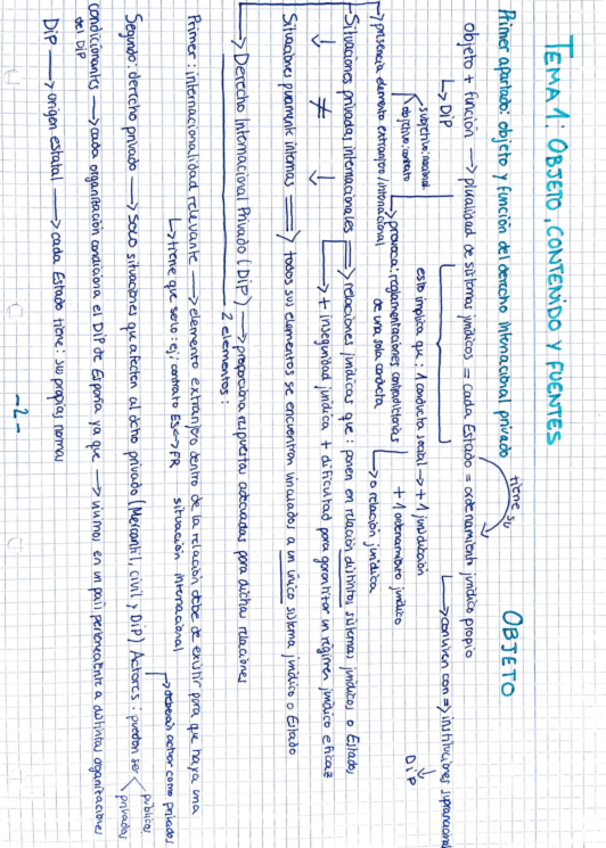 TEMA 1: OBJETO, CONTENIDO Y FUENTES
Primer apartado: objeto y función del derecho internacional privado
tiene su
OBJETO
objeto + función → pluralidad de sistemas jurídicos = cada Estado = ordenamiento jurídico propio
↳ DiP
→ conviven con => instituciones supranacional
↓
DiP
esto implica que: 1 conducta social → + 1 jurisdicción
+ 1 ordenamiento jurídico
subjetivo: nacional
objetivo: contrato
→ provoca: reglamentaciones contradictorias de una sola conducta
↳ o relación jurídica
→ presencia elemento extranjero / internacional
- Situaciones privadas internacionales => relaciones jurídicas que: ponen en relación distintos sistemas jurídicos o Estados
↓ ≠ ↓
→ + inseguridad jurídica + dificultad para garantizar un régimen jurídico eficaz
Situaciones puramente internas => todos sus elementos se encuentran vinculados a un único sistema jurídico o Estado
→ Derecho Internacional Privado (DiP) → proporciona respuesta adecuadas para dichas relaciones
2 elementos:
Primer: internacionalidad relevante → elemento extranjero dentro de la relación debe de existir para que haya una situación internacional
↳ tiene que serlo: ej: contrato ES<->FR
Segundo: derecho privado → solo situaciones que afecten al dcho privado (Mercantil, civil y DiP) Actores: pueden ser
públicos
privados
→ deberán actuar como privados
condicionantes del DiP → cada organización condiciona el DiP de España ya que → vivimos en un país perteneciente a distintas organizaciones
DiP → origen estatal → cada Estado tiene: sus propias normas
-2-